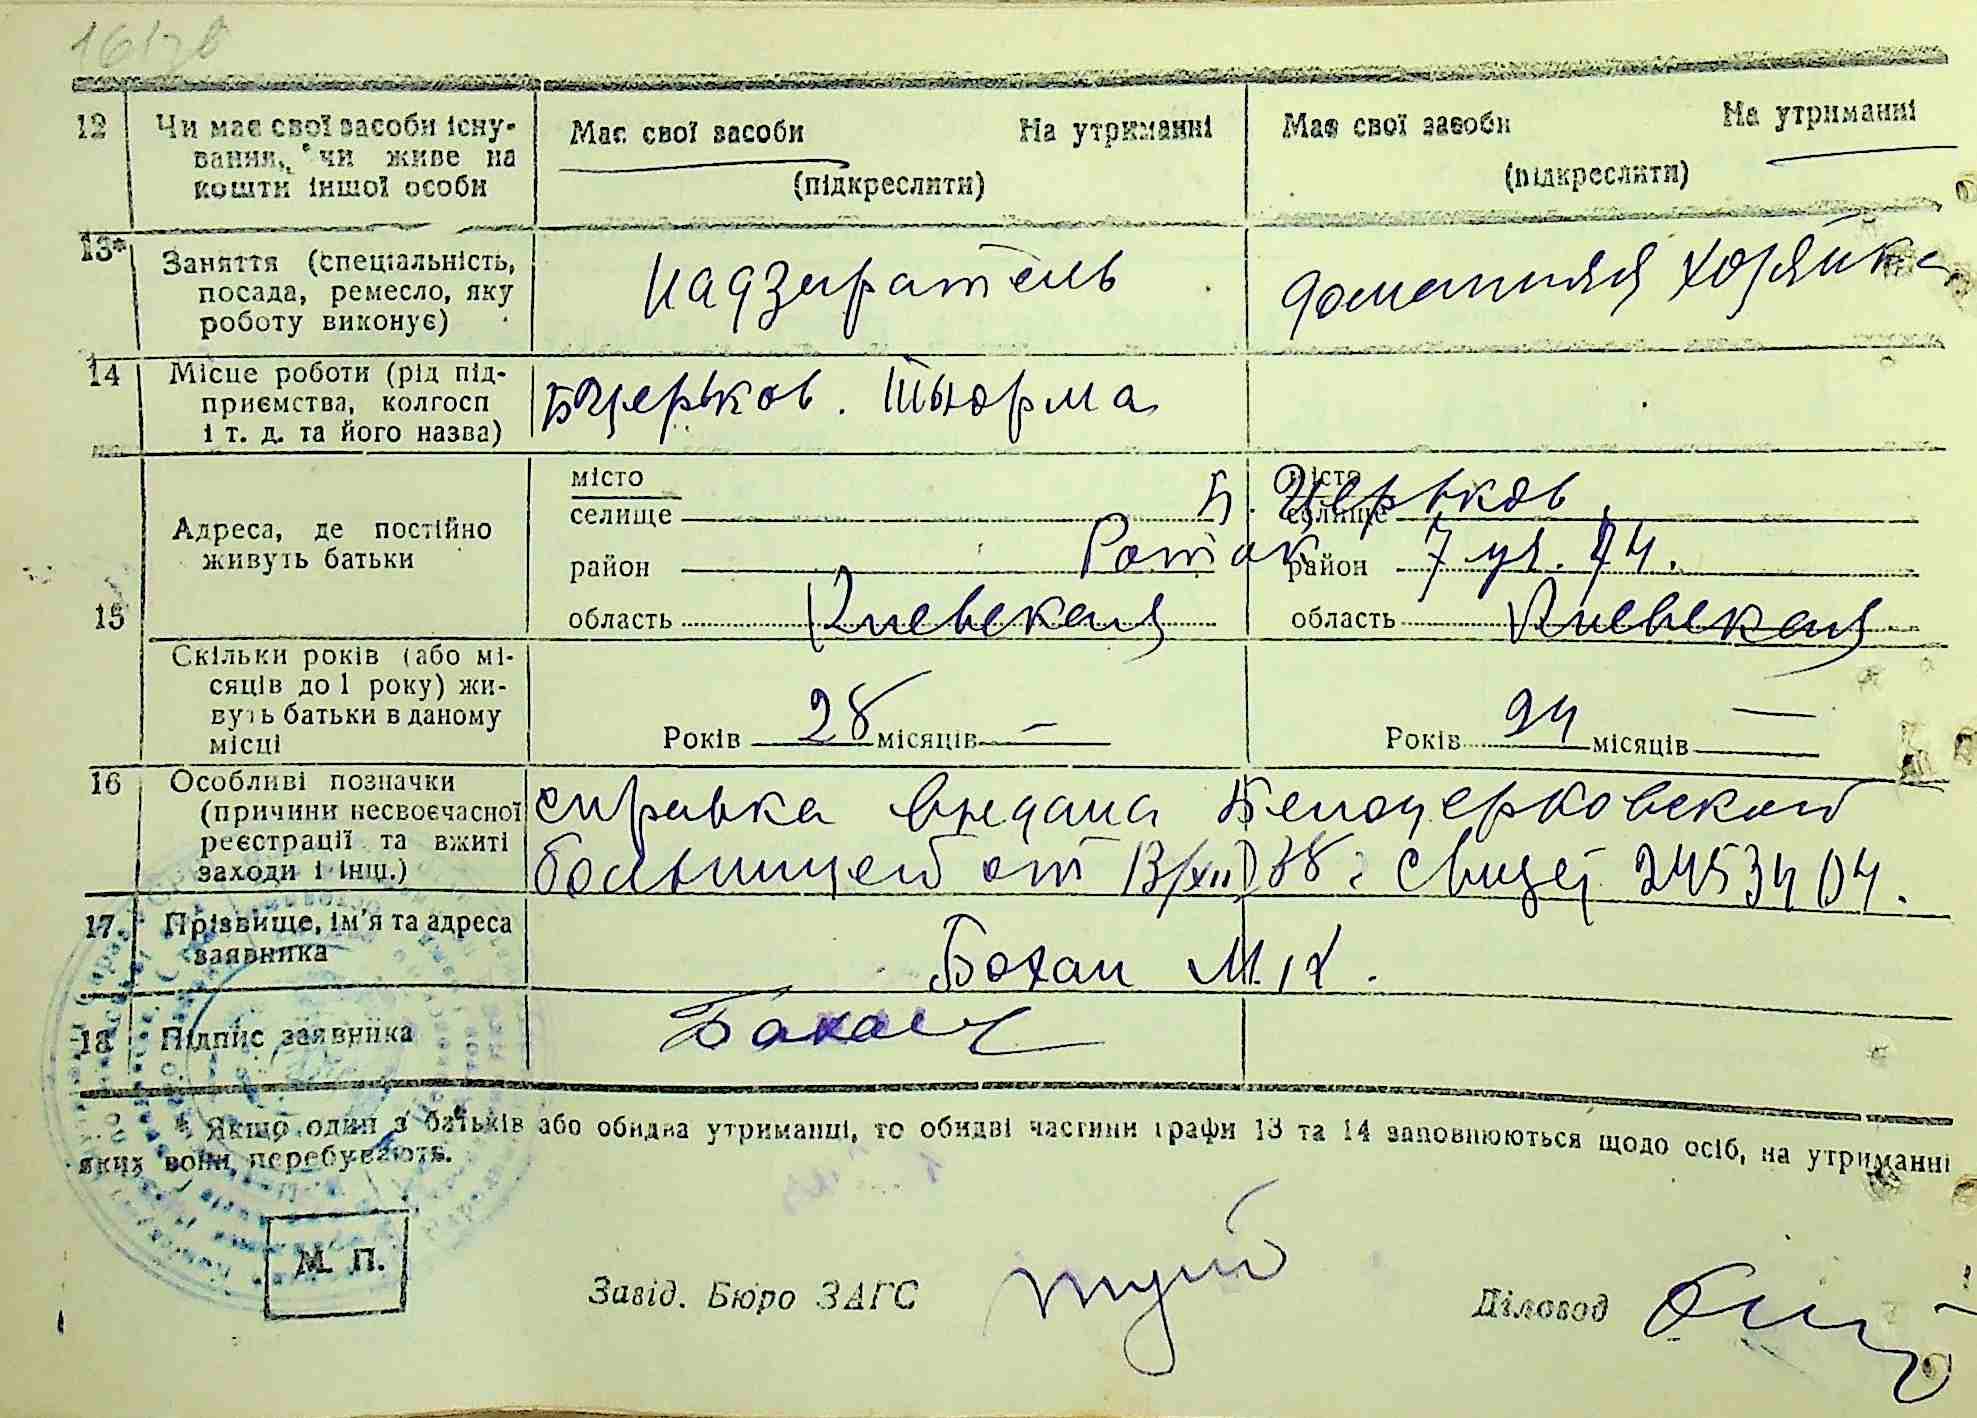 12 Чи має свої засоби існу- Має свої засоби На утриманні Має свої засоби На утриманні
вання, чи живе на
кошти іншої особи (підкреслити) (підкреслити)
13* Заняття (спеціальність, надзиратель домашняя хозяйка
посада, ремесло, яку
роботу виконує)
14 Місце роботи (рід під- Бцерков. тюрма
приємства, колгосп
і т. д. та його назва)
15 Адреса, де постійно
живуть батьки
місто місто
селище селище Б. Церков
район район 7 уч. 74.
область Киевская область Киевская
Скільки років (або мі-
сяців до 1 року) жи-
вуть батьки в даному
місці
Років 28 місяців — Років 24 місяців —
16 Особливі позначки справка видана Белоцерковской
(причини несвоєчасної
реєстрації та вжиті больницей от 13/XII 38 г свидет 2453404.
заходи і інш.)
17 Прізвище, ім'я та адреса
заявника Бохан М. И.
18 Підпис заявника Бохан
* Якщо один з батьків або обидва утриманці, то обидві частини графи 13 та 14 заповнюються щодо осіб, на утриманні
яких вони перебувають.
М. П.
Завід. Бюро ЗАГС Діловод